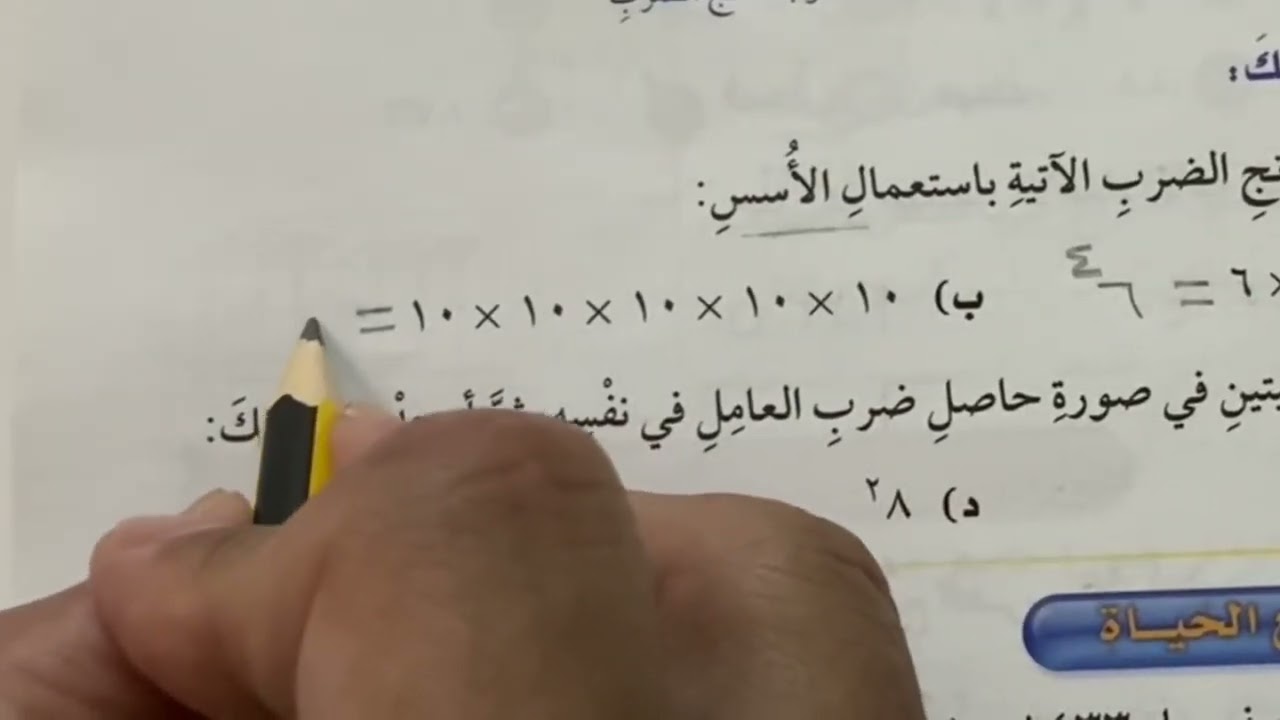 كَ:
الضربِ الآتيةِ باستعمالِ الأُسسِ:
× ٦ = ٦٤ ب) ١٠ × ١٠ × ١٠ × ١٠ × ١٠ =
في صورةِ حاصلِ ضربِ العامِلِ في نفْسِهِ كَ:
د) ٨٢
الحيـاة